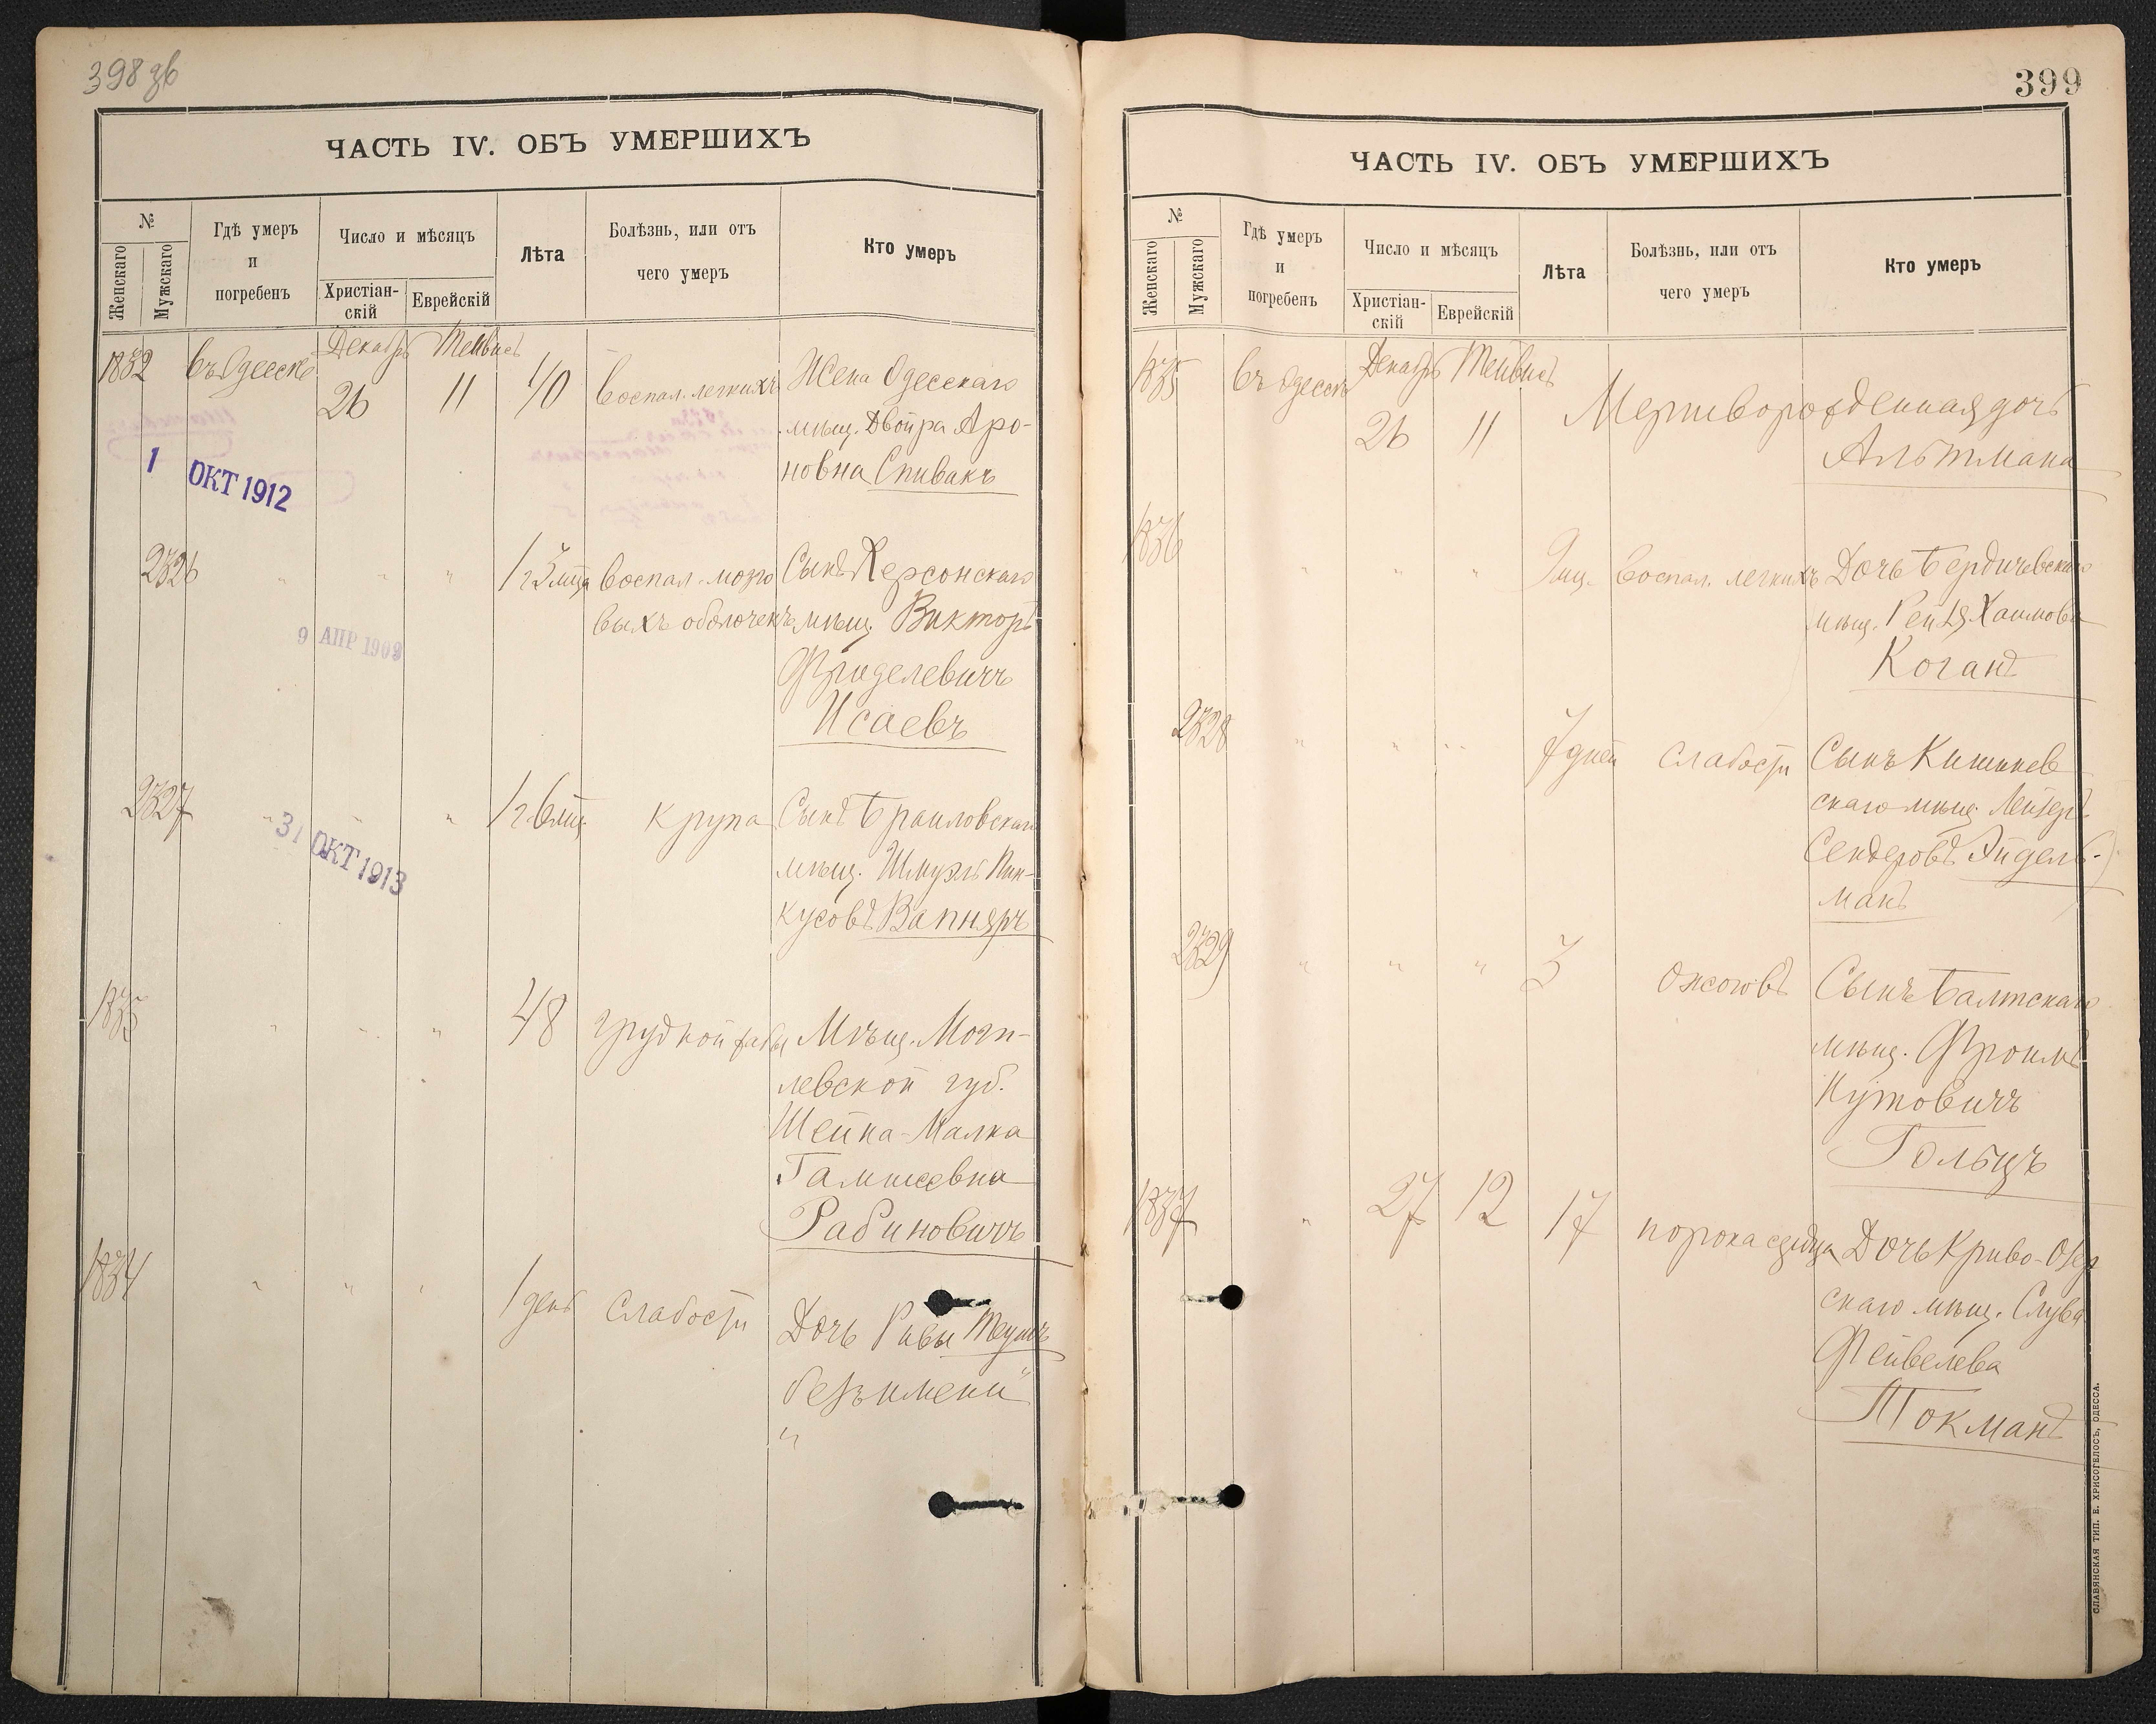 398 зв
ЧАСТЬ IV. ОБЪ УМЕРШИХЪ
№
Женскаго
Мужскаго
Гдѣ умеръ
и
погребенъ
Число и мѣсяцъ
Христіан-
скій
Еврейскій
Лѣта
Болѣзнь, или отъ
чего умеръ
Кто умеръ
1832 въ Одессѣ Декабрь 26 Тейвисъ 11 40 воспал. легкихъ Жена Одесскаго
мѣщ. Двойра Аро-
новна Спивакъ
1 ОКТ 1912
2326 " " " 1 г 3 мца воспал. мозго Сынъ Херсонскаго
выхъ оболочекъ мѣщ. Викторъ
Фриделевичъ
Исаевъ
9 АПР 1909
2327 " " " 1 г 6 мц. крупа Сынъ Браиловскаго
мѣщ. Шмуэль Пин-
кусовъ Вапняръ
31 ОКТ 1913
1833 " " " 48 грудной жабы Мѣщ. Моги-
левской губ.
Шейна-Малка
Рабиновичъ
1834 " " " 1 день слабости Дочь Ривы
безъ имени
"
399
ЧАСТЬ IV. ОБЪ УМЕРШИХЪ
№
Женскаго
Мужскаго
Гдѣ умеръ
и
погребенъ
Число и мѣсяцъ
Христіан-
скій
Еврейскій
Лѣта
Болѣзнь, или отъ
чего умеръ
Кто умеръ
1835 въ Одессѣ Декабрь 26 Тейвисъ 11 Мертворожденная дочь
Альтмана
1836 " " " 9 мц. воспал. легкихъ Дочь Бердичевскаго
мѣщ. Рейзя Хаимова
Коганъ
2328 " " " 7 дней слабости Сынъ Кишинев
скаго мѣщ. Лейзеръ
Сендеровъ Эйдель-
манъ
2329 " " " 3 ожоговъ Сынъ Балтскаго
мѣщ. Фроимъ
Нутовичъ
Гольцъ
1837 " 27 12 17 порока сердца Дочь Криво-Озер
скаго мѣщ. Слува
Фейвелева
Токманъ
СЛАВЯНСКАЯ ТИП. Е. ХРИСОГЕЛОСЪ, ОДЕССА.